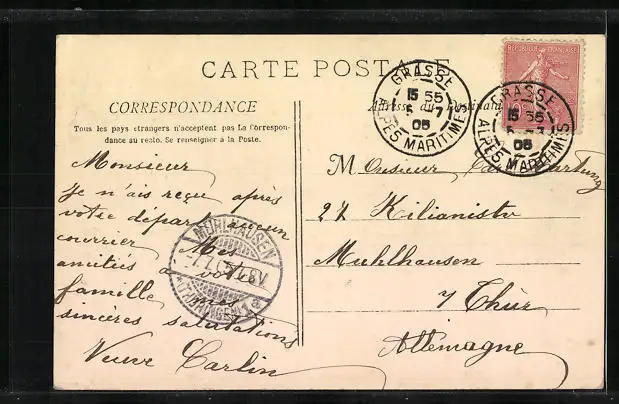 CARTE POSTALE
CORRESPONDANCE
Tous les pays étrangers n'acceptent pas La Correspon-
dance au recto. Se renseigner à la Poste.
Monsieur
Je n'ais reçu après
votre départ aucun
courrier Mes
amitiés a votre
famille
sincères salutations
Veuve Carlin
Adresse du Destinata
Monsieur
27 Kilianistr
Muhlhausen
Thür
Allemagne
REPUBLIQUE FRANÇAISE
GRASSE
15 55
5 -7
05
ALPES MARITIMES
GRASSE
15 55
05
ALPES MARITIMES
MÜHLHAUSEN
(THÜRINGEN) 1 a